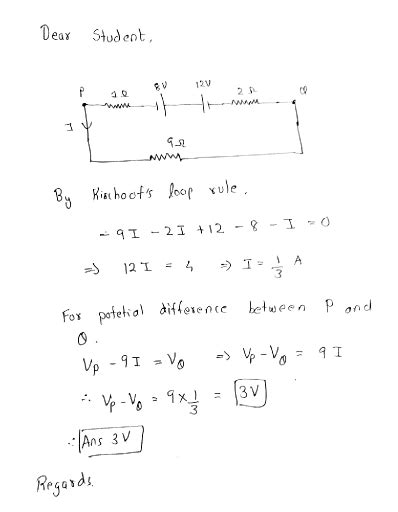 Dear Student,
P 1Ω 8V 12V 2Ω Q
I
9Ω
By Kirchoof's loop rule,
- 9I - 2I + 12 - 8 - I = 0
=> 12 I = 4 => I = 1/3 A
For potetial difference between P and
Q.
Vp - 9I = VQ => Vp - VQ = 9I
∴ Vp - VQ = 9 × 1/3 = 3V
∴ Ans 3V
Regards.